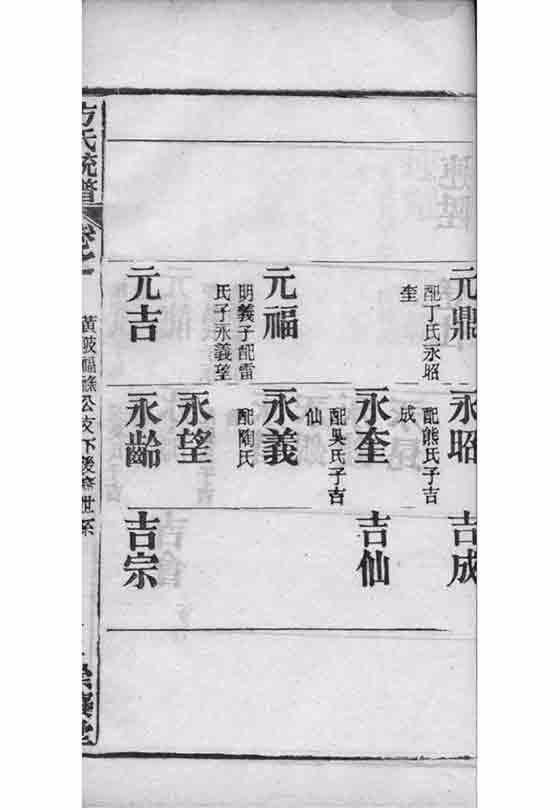 元鼎
配丁氏永昭
奎
元福
明義子配雷
氏子永義望
元吉
永昭
配熊氏子吉
成
永奎
配吳氏子吉
仙
永義
配陶氏
永望
永齡
吉成
吉仙
吉宗
方氏統譜
卷一
黃陂福緣公支下後裔世系